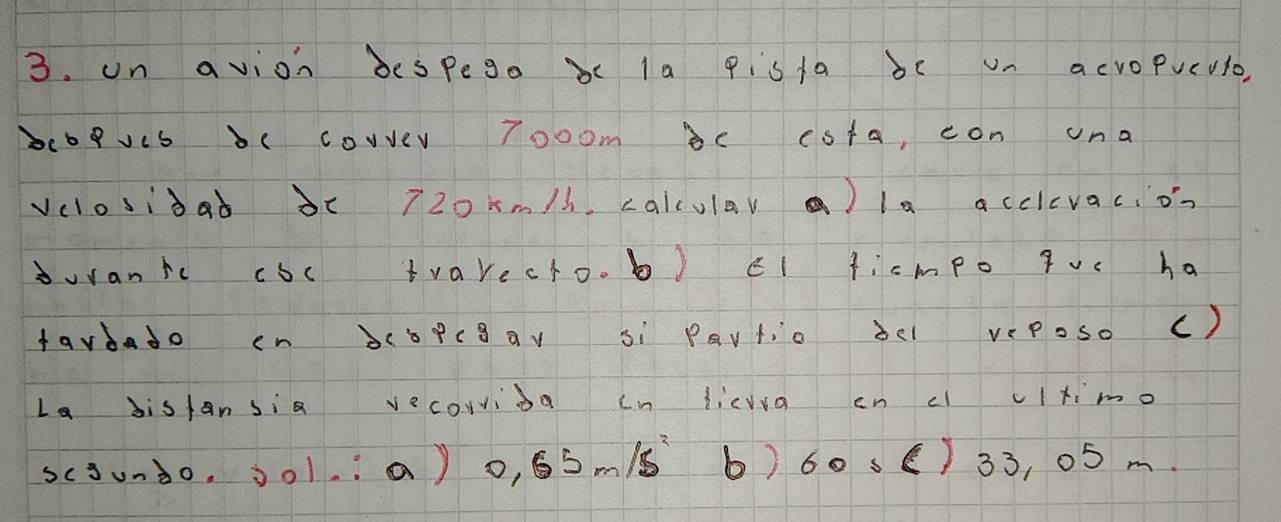 3. un avión despega de la pista de un aeropuerto,
despues de correr 7000m de esta, con una
velosidad de 720km/h. calcular a) la acelera ción
durante ese trayecto. b) El tiempo que ha
tardado en despegar si partio del reposo c)
La distansia recorrida en tierra en el ultimo
segundo. sol.: a) 0,65m/s² b) 60s c) 33,05m.